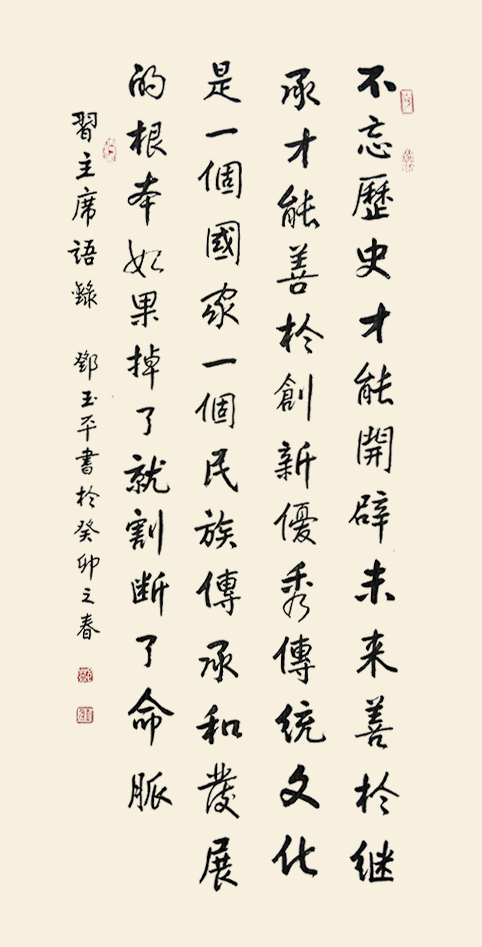 不忘歷史才能開辟未来善於继
承才能善於創新優秀傳統文化
是一個國家一個民族傳承和發展
的根本如果掉了就割断了命脈
習主席語錄 鄧玉平書於癸卯之春